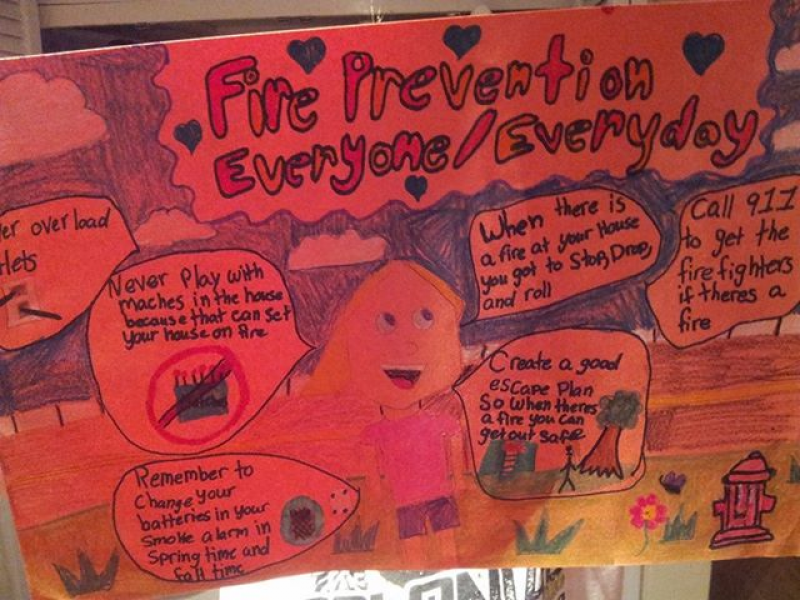 Fire Prevention
Everyone/Everyday
over load
When there is
a fire at your House
you got to Stop, Drop,
and roll
Call 911
to get the
fire fighters
if theres a
fire
Never Play with
maches in the house
because that can set
your house on fire
Create a good
escape Plan
So when theres
a fire you can
get out safe
Remember to
Change your
batteries in your
Smoke alarm in
Spring time and
fall time